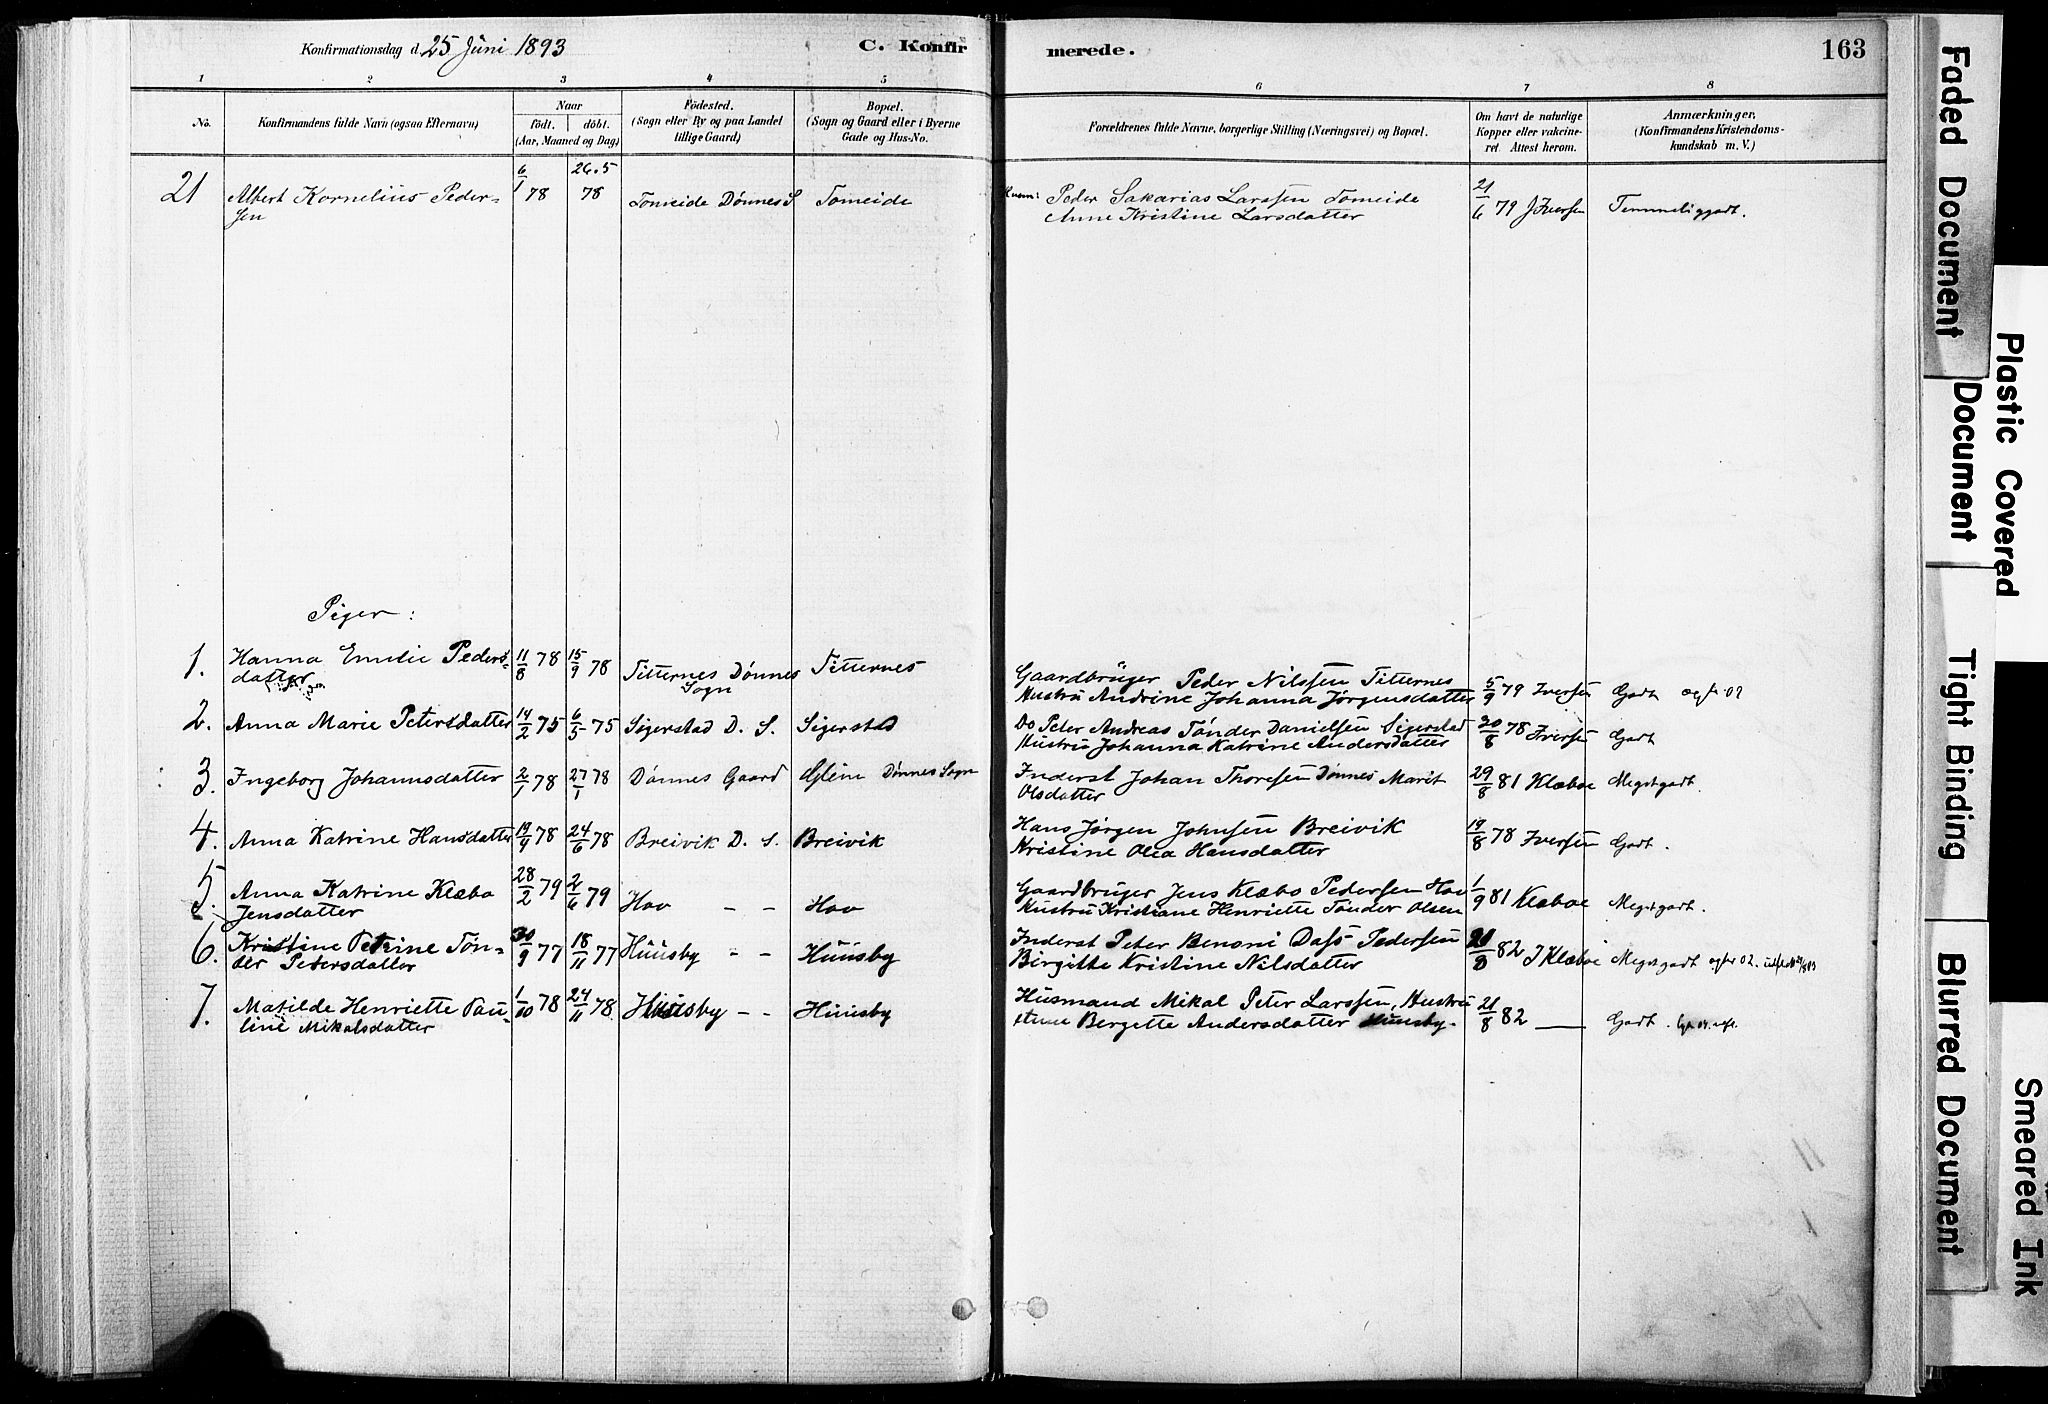 Konfirmationsdag d. 25 Juni 1893
C. Konfirmerede.
163
1 2 3 4 5 6 7 8
No.
Konfirmandens fulde Navn (ogsaa Efternavn)
Naar
født. døbt.
(Aar, Maaned og Dag)
Fødested.
(Sogn eller By og paa Landet
tillige Gaard)
Bopæl.
(Sogn og Gaard eller i Byerne
Gade og Hus-No.
Forældrenes fulde Navne, borgerlige Stilling (Næringsvei) og Bopæl.
Om havt de naturlige
Kopper eller vakcine-
ret. Attest herom.
Anmærkninger.
(Konfirmandens Kristendoms-
kundskab m. V.)
21 Albert Kornelius Peder- 6/1 78 26.5 78 Tomeide Dønnes S Tomeide Peder Sakarias Larssen Tomeide 21/6 79 J Iversen Temmeliggodt.
sen Anne Kristine Larsdatter
Piger:
1. Hanna Emilie Peders- 11/8 78 15/9 78 Titternes Dønnes Titternes Gaardbruger Peder Nilssen Titternes 5/9 79 Iversen Godt
datter Sogn Hustru Andrine Johanna Jørgensdatter
2. Anna Marie Petersdatter 14/2 75 6/5 75 Sigerstad D. S. Sigerstad Do Peter Andreas Tønder Danielsen Sigerstad 20/8 78 Iversen Godt
Hustru Johanna Katrine Andersdatter
3. Ingeborg Johannsdatter 2/1 78 27/1 78 Dønnes Gaard Glein Dønnes Sogn Inderst Johan Thoresen Dønnes Marit 29/8 81 Klæboe Megetgodt.
Olsdatter
4. Anna Katrine Hansdatter 19/4 78 24/6 78 Breivik D. S. Breivik Hans Jørgen Johnsen Breivik 19/8 78 Iversen Godt.
Kristine Olea Hansdatter
5. Anna Katrine Klæbo 28/2 79 2/6 79 Hov - - Hov Gaardbruger Jens Klæbo Pedersen Hov 1/9 81 Klæboe Megetgodt.
Jensdatter Hustru Kristiane Henriette Tønder Olsen
6. Kristine Petrine Tøn- 30/9 77 18/11 77 Huusby - - Huusby Inderst Peter Benoni Dass Pedersen 82 J Klæboe Megetgodt
der Petersdatter Birgitte Kristine Nilsdatter
7. Matilde Henriette Pau- 1/10 78 24/11 78 Huusby - - Huusby Husmand Mikal Peter Larssen, Hustru 21/8 82 — Godt.
line Mikalsdatter Bergette Andersdatter Huusby.
Faded Document
Plastic Covered Document
Tight Binding
Blurred Document
Smeared Ink